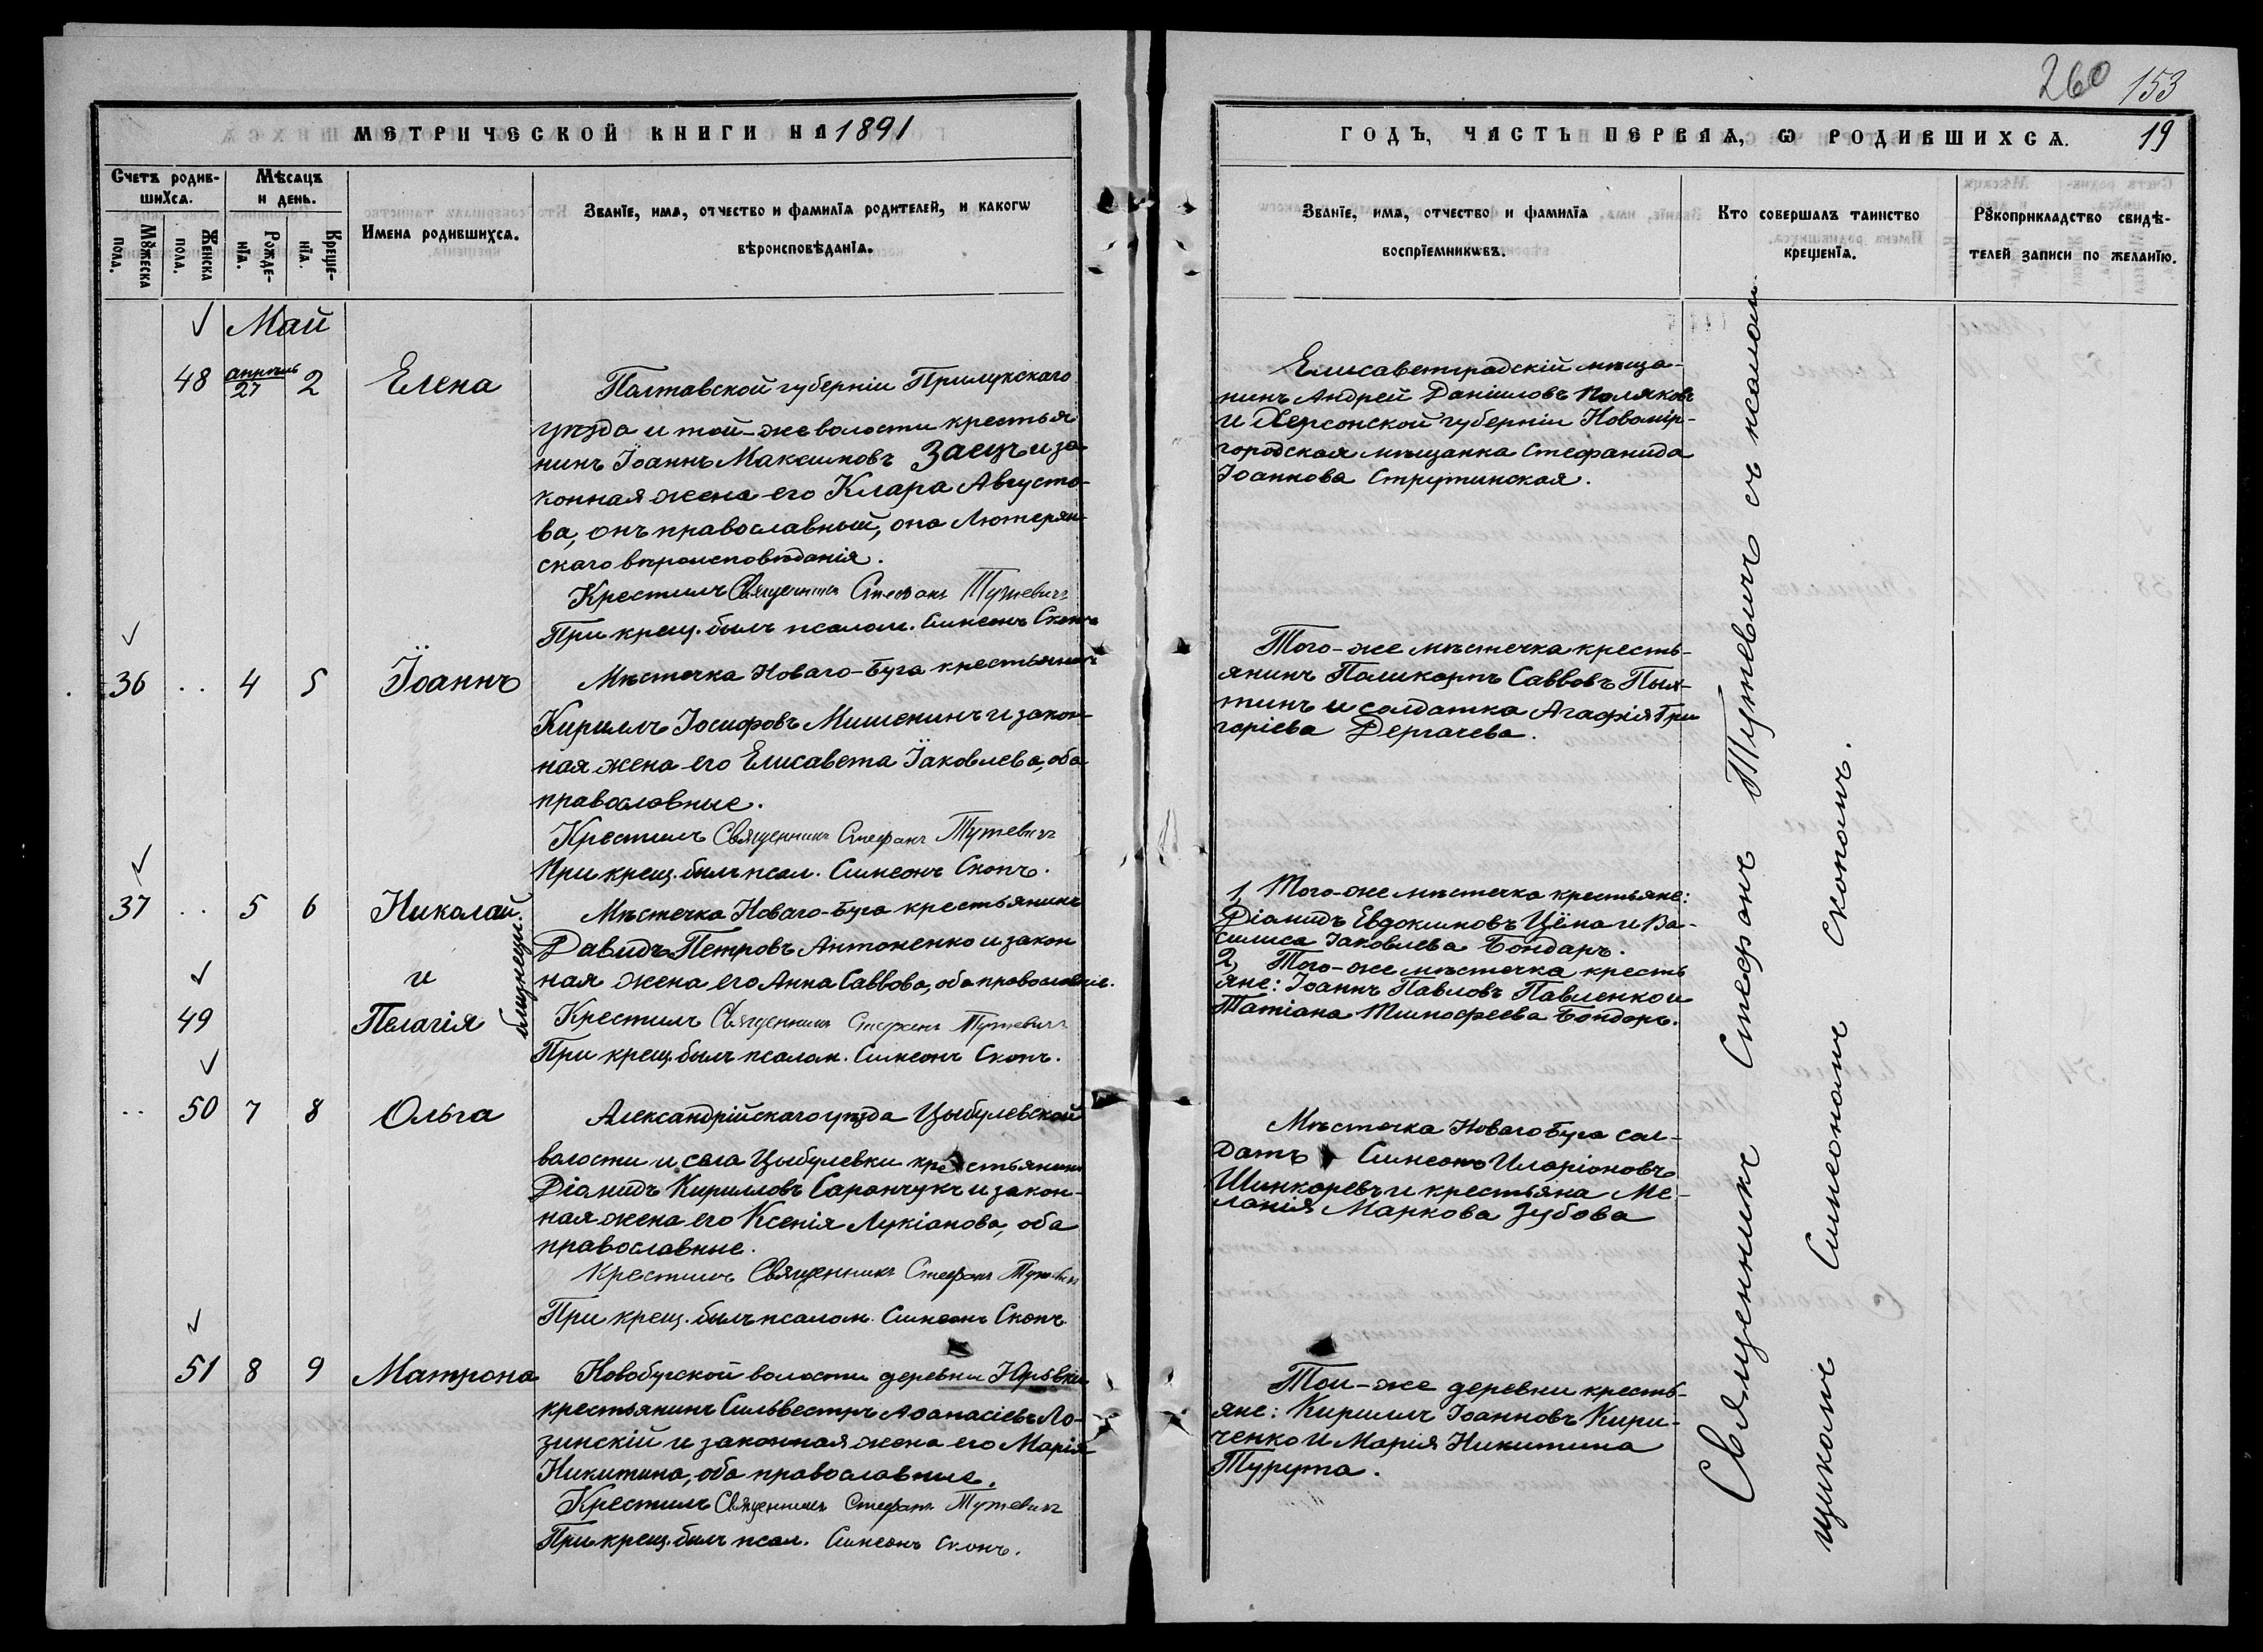 260 153
МЕТРИЧЕСКОЙ КНИГИ НА 1891
ГОДЪ, ЧАСТЬ ПЕРВАѦ, Ѡ РОДИВШИХСѦ.
19
Счетъ родив-
шиХсѧ.
Мѣсѧцъ
и день.
Мꙋжеска
пола.
Женска
пола.
Рожде-
нїѧ.
Креще-
нїѧ.
Имена родившихсѧ.
Званїе, имѧ, отчество и фамилїѧ родителей, и какогѡ
вѣроисповѣданїѧ.
Званїе, имѧ, отчество и фамилїѧ
воспрїемникѡвъ.
Кто совершалъ таинство
крещенїѧ.
Рꙋкоприкладство свидѣ-
телей записи по желанїю.
Май
48 апрель 27 2 Елена
Полтавской губерніи Прилукскаго
уѣзда и той-же волости крестья
нинъ Іоаннъ Максимовъ Заецъ и за-
конная жена его Клара Августо-
ва, онъ православный, она Лютеран-
скаго вѣроисповѣданія.
Крестилъ Священникъ Стефанъ Тутевичъ
При крещ. былъ псалом. Симеонъ Скопъ
Елисаветградскій мѣща-
нинъ Андрей Даніиловъ Поляковъ
и Херсонской губерніи Новомір-
городская мѣщанка Стефанида
Іоаннова Струтинская.
36 .. 4 5 Іоаннъ
Мѣстечка Новаго-Буга крестьянинъ
Кириллъ Іосифовъ Мишенинъ и закон-
ная жена его Елисавета Іаковлева, оба
православные.
Крестилъ Священникъ Стефанъ Тутевичъ
При крещ. былъ псал. Симеонъ Скопъ.
Того-же мѣстечка кресть-
янинъ Поликарпъ Саввовъ Пых-
тинъ и солдатка Агафія Гри
горіева Дергачева.
37 .. 5 6 Николай
и
49 Пелагія
близнецы.
Мѣстечка Новаго-Буга крестьянинъ
Давидъ Петровъ Антоненко и закон
ная жена его Анна Саввова, оба православные.
Крестилъ Священникъ Стефанъ Тутевичъ
При крещ. былъ псалом. Симеонъ Скопъ.
1, Того-же мѣстечка крестьяне:
Діомидъ Евдокимовъ Цёна и Ва-
силиса Іаковлева Бондарь.
2, Того-же мѣстечка кресть
яне: Іоаннъ Павловъ Павленко и
Татіана Тимофеева Бондарь.
.. 50 7 8 Ольга
Александрійскаго уѣзда Цыбулевской
волости и села Цыбулевки крестьянинъ
Діомидъ Кирилловъ Саранчукъ и закон-
ная жена его Ксенія Лукіанова, оба
православные.
Крестилъ Священникъ Стефанъ Тутевичъ
При крещ. былъ псалом. Симеонъ Скопъ
Мѣстечка Новаго Буга сол-
датъ Симеонъ Иларіоновъ
Шинкоревъ и крестьяна Ме-
ланія Маркова Зубова
51 8 9 Матрона
Новобугской волости деревни Юрьвки
крестьянинъ Сильвестръ Аѳанасіевъ Ло-
зинскій и законная жена его Марія
Никитина, оба православные.
Крестилъ Священникъ Стефанъ Тутевичъ
При крещ. былъ псал. Симеонъ Скопъ.
Той-же деревни кресть-
яне: Кириллъ Іоанновъ Кири-
ченко и Марія Никитина
Турута.
Священникъ Стефанъ Тутевичъ съ псалом-
щикомъ Симеономъ Скопомъ.